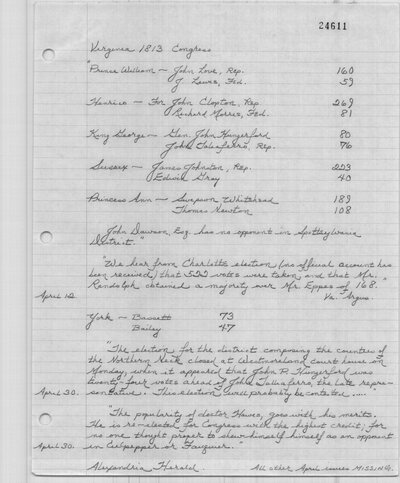 24611
Virginia 1813 Congress
"Prince William — John Love, Rep. 160
J Lewis, Fed. 59
Henrico — For John Clopton, Rep. 269
Richard Morris, Fed. 81
King George — Gen. John Hungerford 80
John Taliaferro, Rep. 76
Sussex — James Johnston, Rep. 223
Edwin Gray 40
Princess Ann — Swepson Whitehead 189
Thomas Newton 108
John Dawson, Esq. has no opponent in Spottsylvania
District."
"We hear from Charlotte election, (no official account has
been received) that 522 votes were taken, and that Mr.
Randolph obtained a majority over Mr. Eppes of 168."
April 12. Va. "Argus"
York — Bassett 73
Bailey 47
"The election for the district composing the counties of
the Northern Neck closed at Westmoreland court house on
Monday, when it appeared that John P. Hungerford was
twenty-four votes ahead of John Taliaferro, the late repre-
April 30. sentative. This election will probably be contested .....
"The popularity of doctor Hawes, goes with his merits.
He is re-elected for Congress with the highest credit, for
no one thought proper to shew himself as an opponent
April 30. in Culpepper or Fauquier."
Alexandria Herald. All other April issues MISSING.